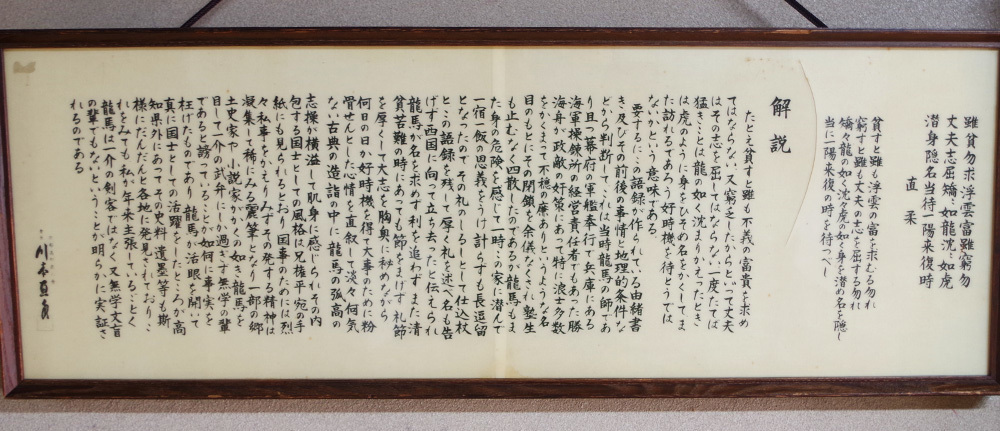 雖貧勿求浮雲富雖窮勿
丈夫志屈矯如龍沈如虎
潜身隠名当待一陽来復時
直柔
貧すと雖も浮雲の富を求むる勿れ
窮すと雖も丈夫の志を屈する勿れ
矯々龍の如く沈々虎の如く身を潜め名を隠し
当に一陽来復の時を待つべし
解説
たとえ貧すと雖も不義の富貴を求め
てはならない又窮乏したからといって丈夫
はその志を屈してはならない一度たてば
猛きことは龍の如く沈まりかえったとき
は虎のように身をひそめ名をかくしてま
た訪れるであろう好時機を待とうでは
ないかという意味である
要するにこの語録が作られている由緒書
き及びその前後の事情と地理的条件な
どから判断してこれは当時龍馬の師であ
り且つ幕府の軍艦奉行で兵庫にある
海軍操錬所の経営責任者でもあった勝
海舟が政敵の奸策にあって特に浪士多数
をかくまって不穏の廉ありというような名
目のもとにその閉鎖を余儀なくされ塾生
も止むなく四散したのであるが龍馬もま
た身の危険を感じて一時この家に潜んで
一宿一飯の恩義をうけ計らずも長逗留
となったのでその礼のしるしとして仕込杖
とこの語録を残して厚く礼を述べ名も告
げず西国に向って立ち去ったと伝えられ
龍馬が名を求めず利を追わずまた清
貧苦難の時にあっても節をまげず礼節
を厚くして大志を胸奥に秘めながら
何日の日か好時機を得て大事のために粉
骨せんとした心情を直叙して淡々何気
ない古典の造詣の中に龍馬の弧高の
志操が横溢して肌身に感じられその内
包する国士としての風格は兄権平宛の手
紙にも見られるとおり国事のためには烈
々私事をかえりみずその発する精神は
凝集して稀にみる麗筆となり一部の郷
土史家や小説家がかくの如き龍馬を
目して一介の武弁にしか過ぎず無学の輩
であると謗っていることが如何に事実を
枉げたものであり龍馬が活眼を開いて
真に国士としての活躍をしたところが高
知県外にあってその史料遺墨等も斯
様にだんだんと各地に発見されておりこ
れをみても私が年来主張していることく
龍馬は一介の剣客ではなく又無学文盲
の輩でもないということが明らかに実証さ
れるのである